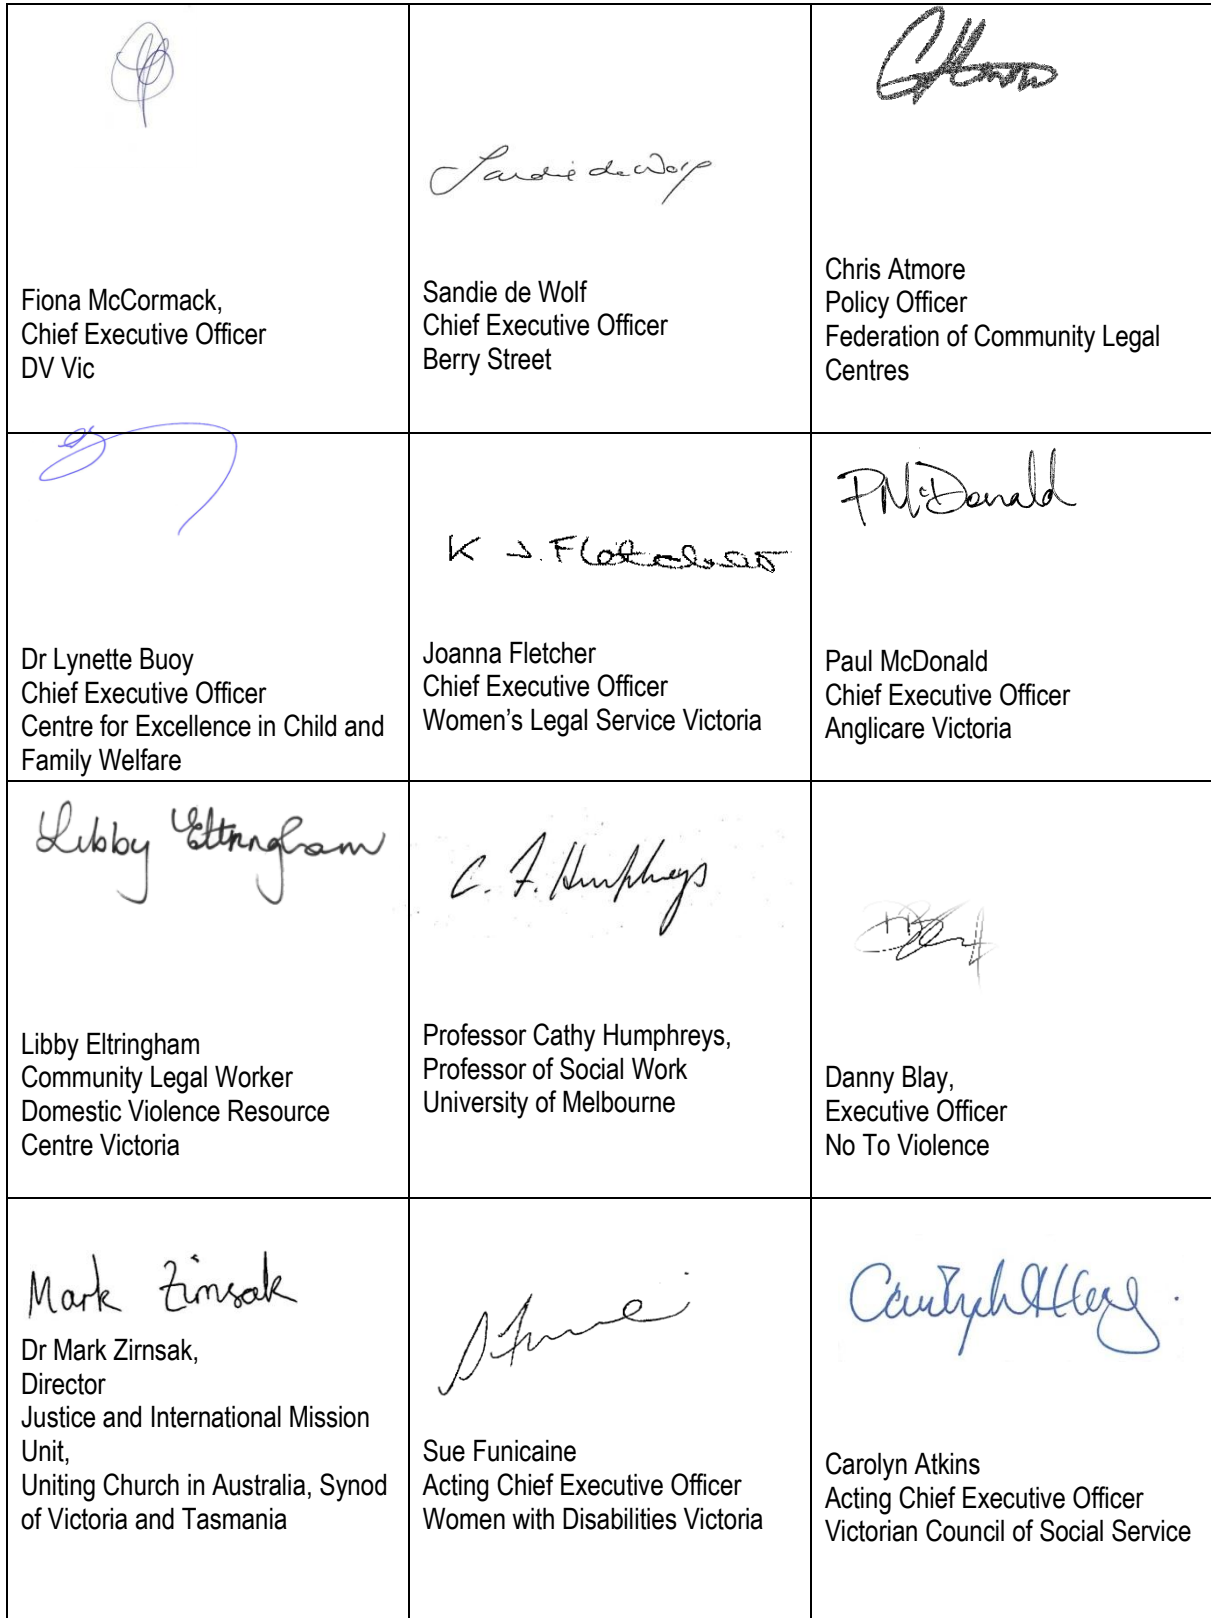 Sandie de Wolf
Fiona McCormack,
Chief Executive Officer
DV Vic
Sandie de Wolf
Chief Executive Officer
Berry Street
Chris Atmore
Policy Officer
Federation of Community Legal
Centres
K J. Fletcher
PMcDonald
Dr Lynette Buoy
Chief Executive Officer
Centre for Excellence in Child and
Family Welfare
Joanna Fletcher
Chief Executive Officer
Women’s Legal Service Victoria
Paul McDonald
Chief Executive Officer
Anglicare Victoria
Libby Eltringham
C. F. Humphreys
Libby Eltringham
Community Legal Worker
Domestic Violence Resource
Centre Victoria
Professor Cathy Humphreys,
Professor of Social Work
University of Melbourne
Danny Blay,
Executive Officer
No To Violence
Mark Zirnsak
Dr Mark Zirnsak,
Director
Justice and International Mission
Unit,
Uniting Church in Australia, Synod
of Victoria and Tasmania
Sue Funicaine
Acting Chief Executive Officer
Women with Disabilities Victoria
Carolyn Atkins
Acting Chief Executive Officer
Victorian Council of Social Service